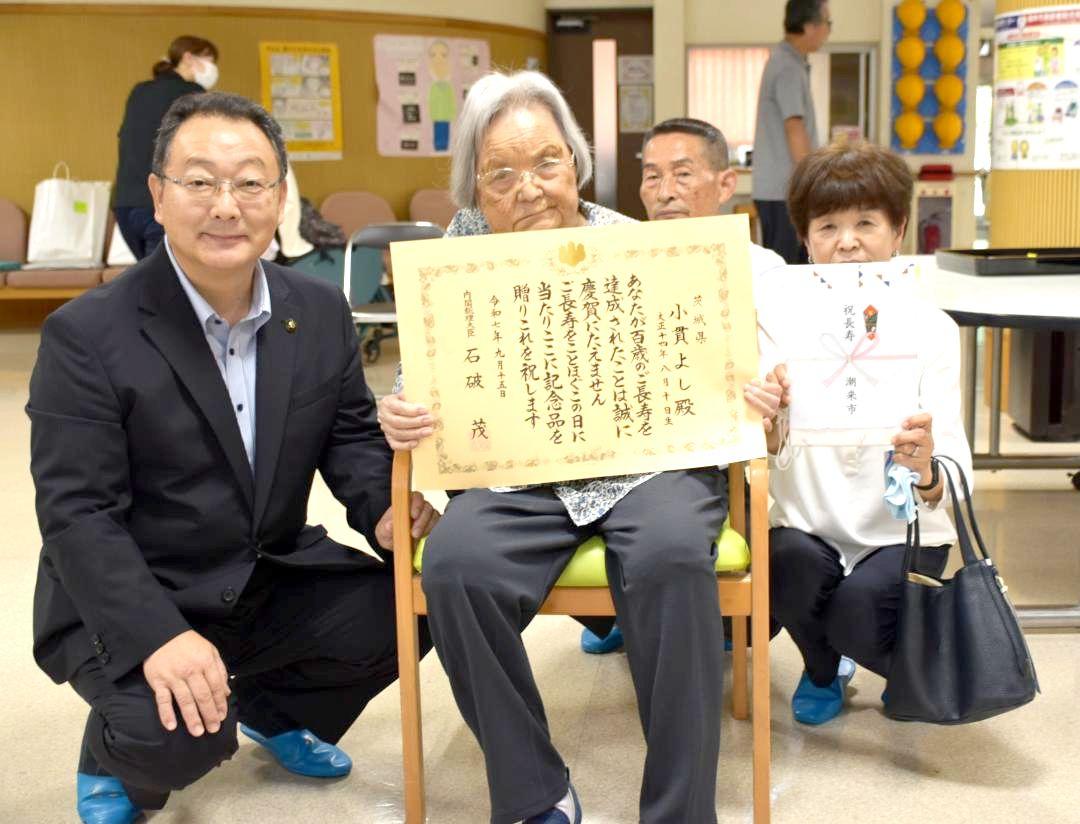 茨城県
小貫よし殿
大正十四年八月十日生
あなたが百歳のご長寿を
達成されたことは誠に
慶賀にたえません
ご長寿をことほぐこの日に
当たりここに記念品を
贈りこれを祝します
令和七年九月十五日
内閣総理大臣 石破 茂
祝長寿
潮来市